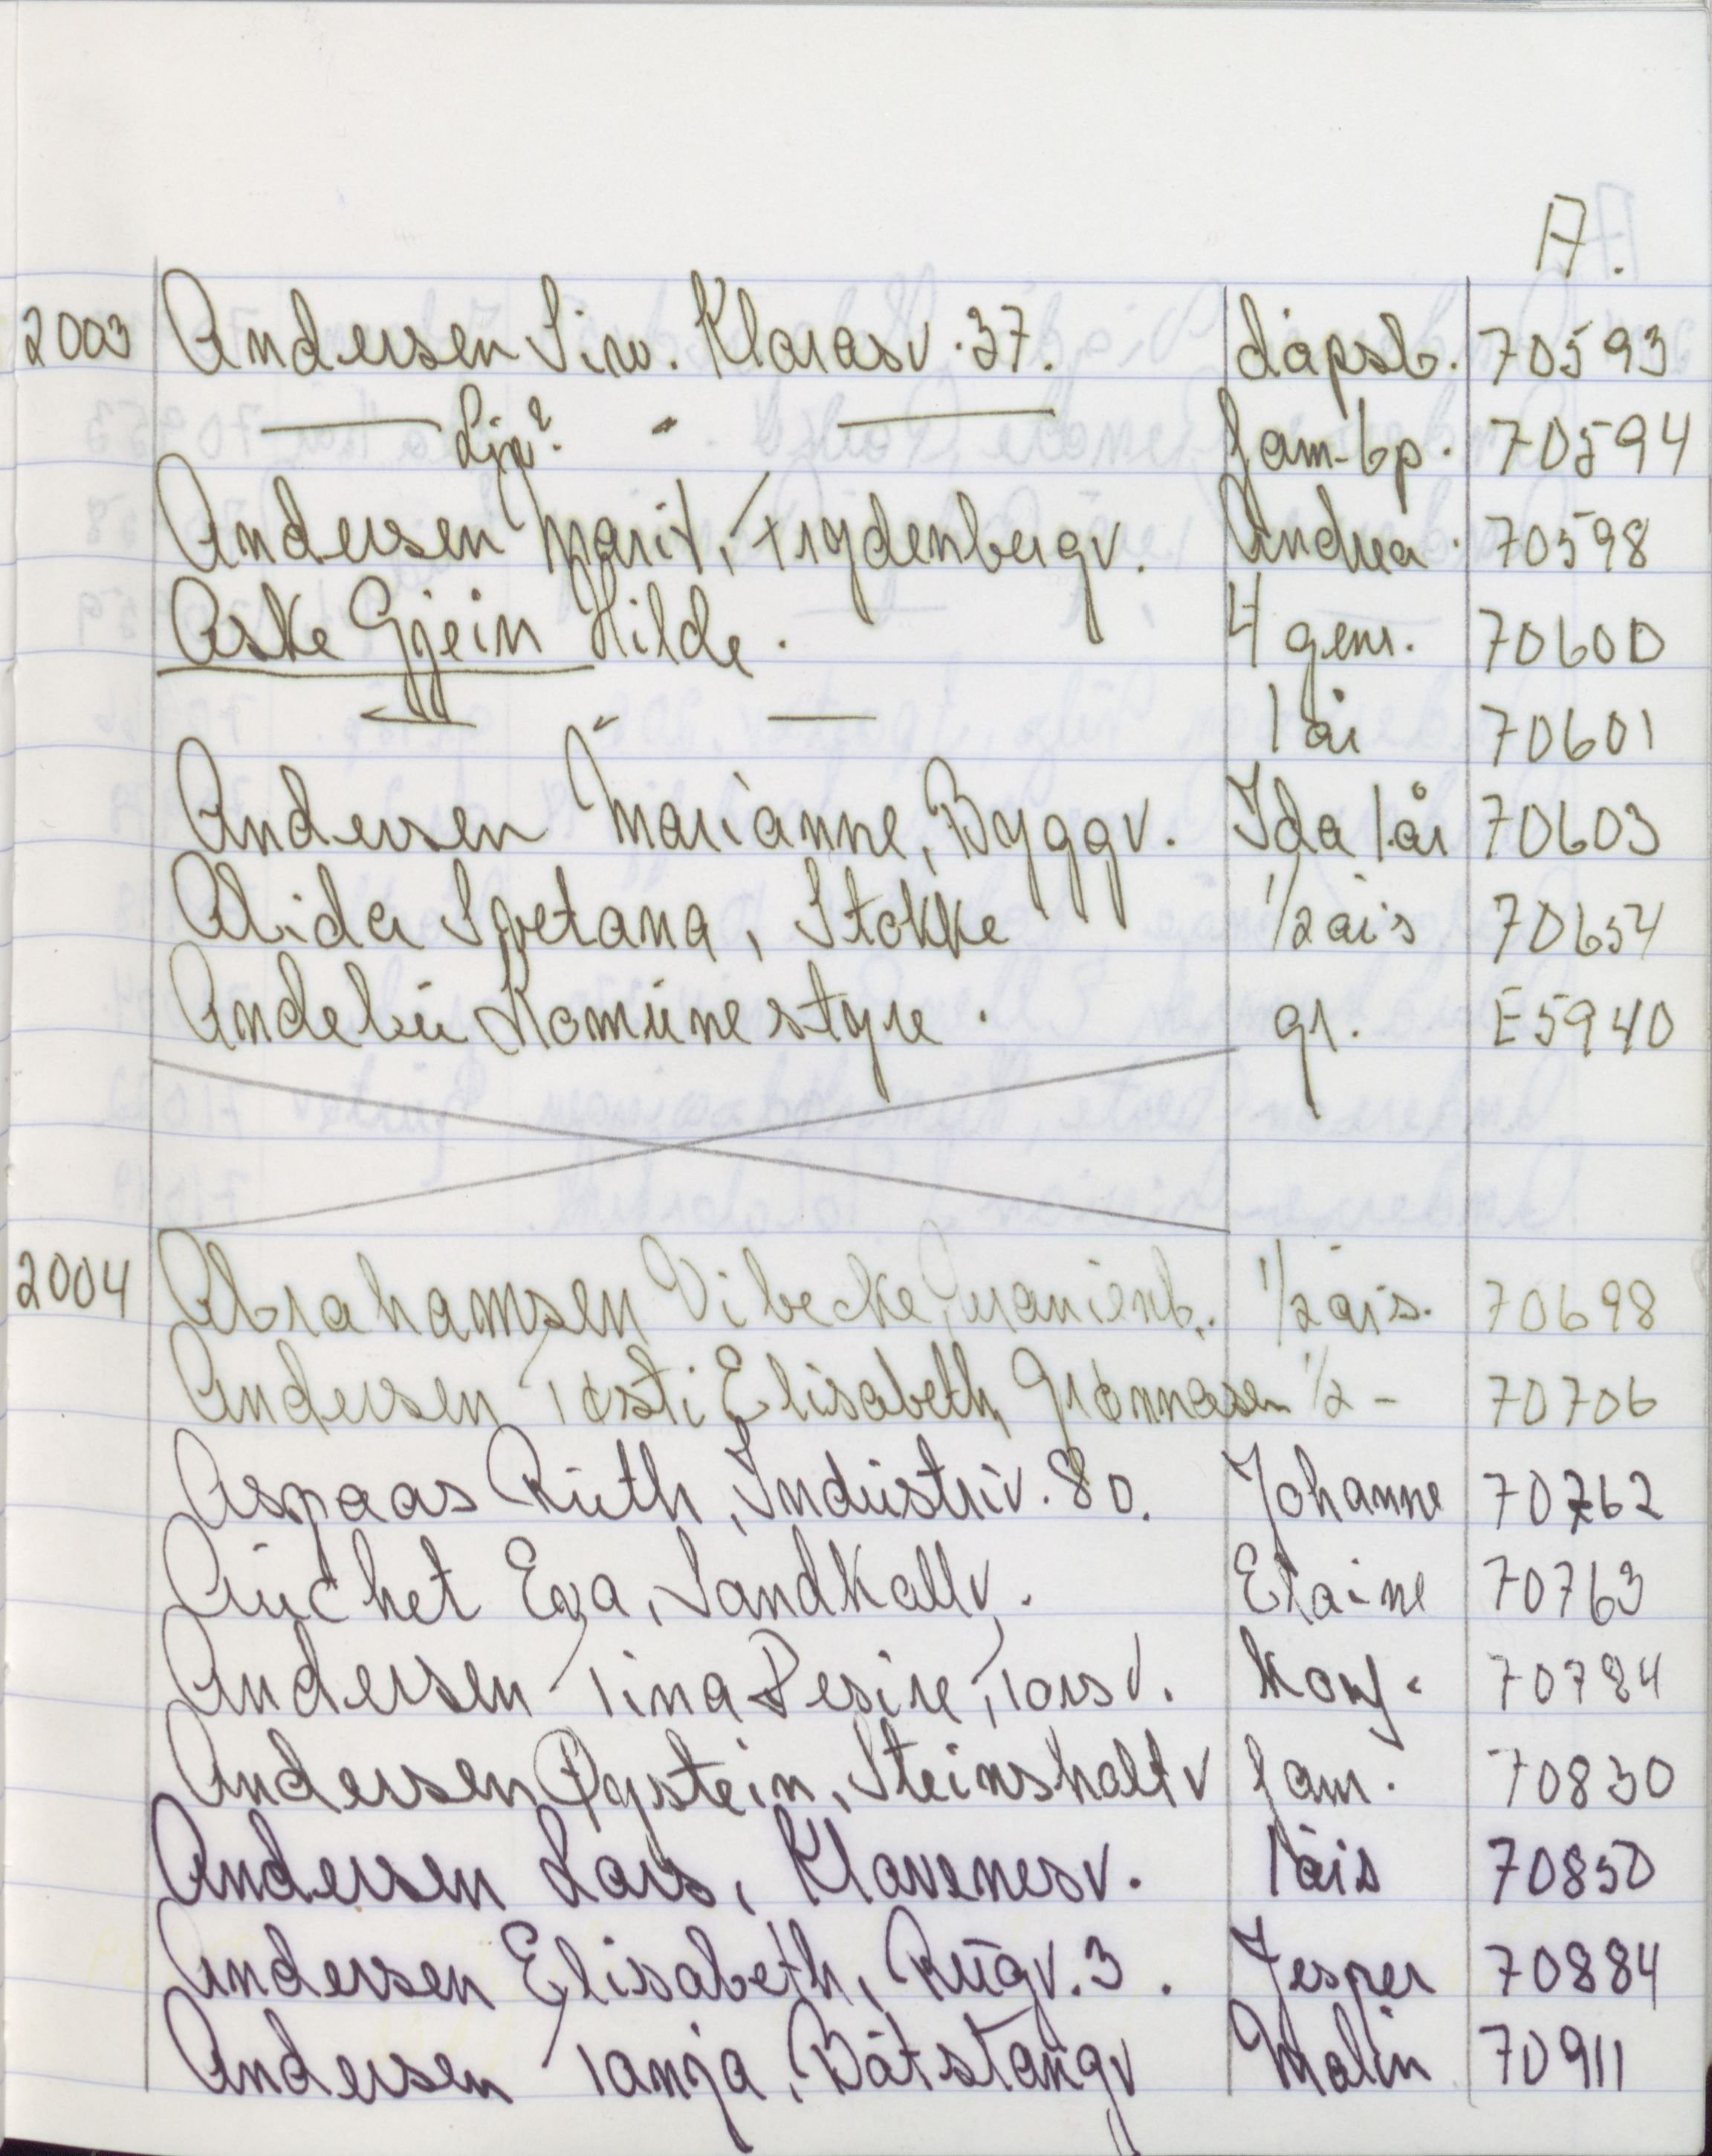 A.
2003 Andersen Siw. Klarasv. 37. dåpsb. 70593
" fam-bp. 70594
Andersen Marit, Frydenbergv. Andrea. 70598
Aske Gjein Hilde. 4 gens. 70600
" 1 år 70601
Andersen Marianne, Byggv. Ida 1.år 70603
Alida Svetana, Stokke 1/2 års 70654
Andebu Komunestyre. gr. E5940
2004 Abrahamsen Vibecke, 1/2 års. 70698
Andersen Elisabeth, Grønnåsen 1/2 - 70706
Aspaas Ruth, Industriv. 80. Johanne 70762
Auchet Eva, Sandkollv. Elaine 70763
Andersen Tina Desire, Torsv. konf. 70784
Andersen Øystein, Steinsholtv fam. 70830
Andersen Lars, Klavenesv. 1 års 70850
Andersen Elisabeth, Rugv. 3. Jesper 70884
Andersen Tanja, Båtstangv Malin 70911